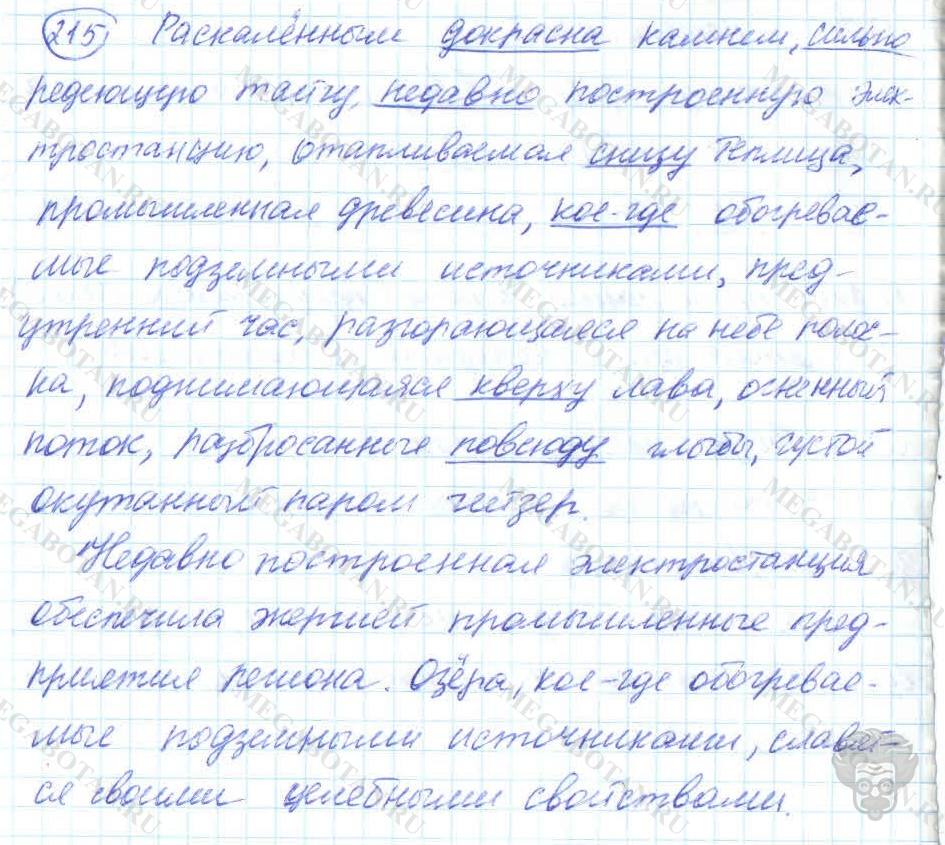 215 Раскалённым докрасна камнем, сильно
редеющую тайгу, недавно построенную элек-
тростанцию, отапливаемая снизу теплица,
промышленная древесина, кое-где обогревае-
мые подземными источниками, пред-
утренний час, разгорающаяся на небе полос-
ка, поднимающаяся кверху лава, огненный
поток, разбросанные повсюду глыбы, густой
окутанный паром гейзер.
Недавно построенная электростанция
обеспечила энергией промышленные пред-
приятия региона. Озёра, кое-где обогревае-
мые подземными источниками, славят-
ся своими целебными свойствами.
MEGABOTAN.RU